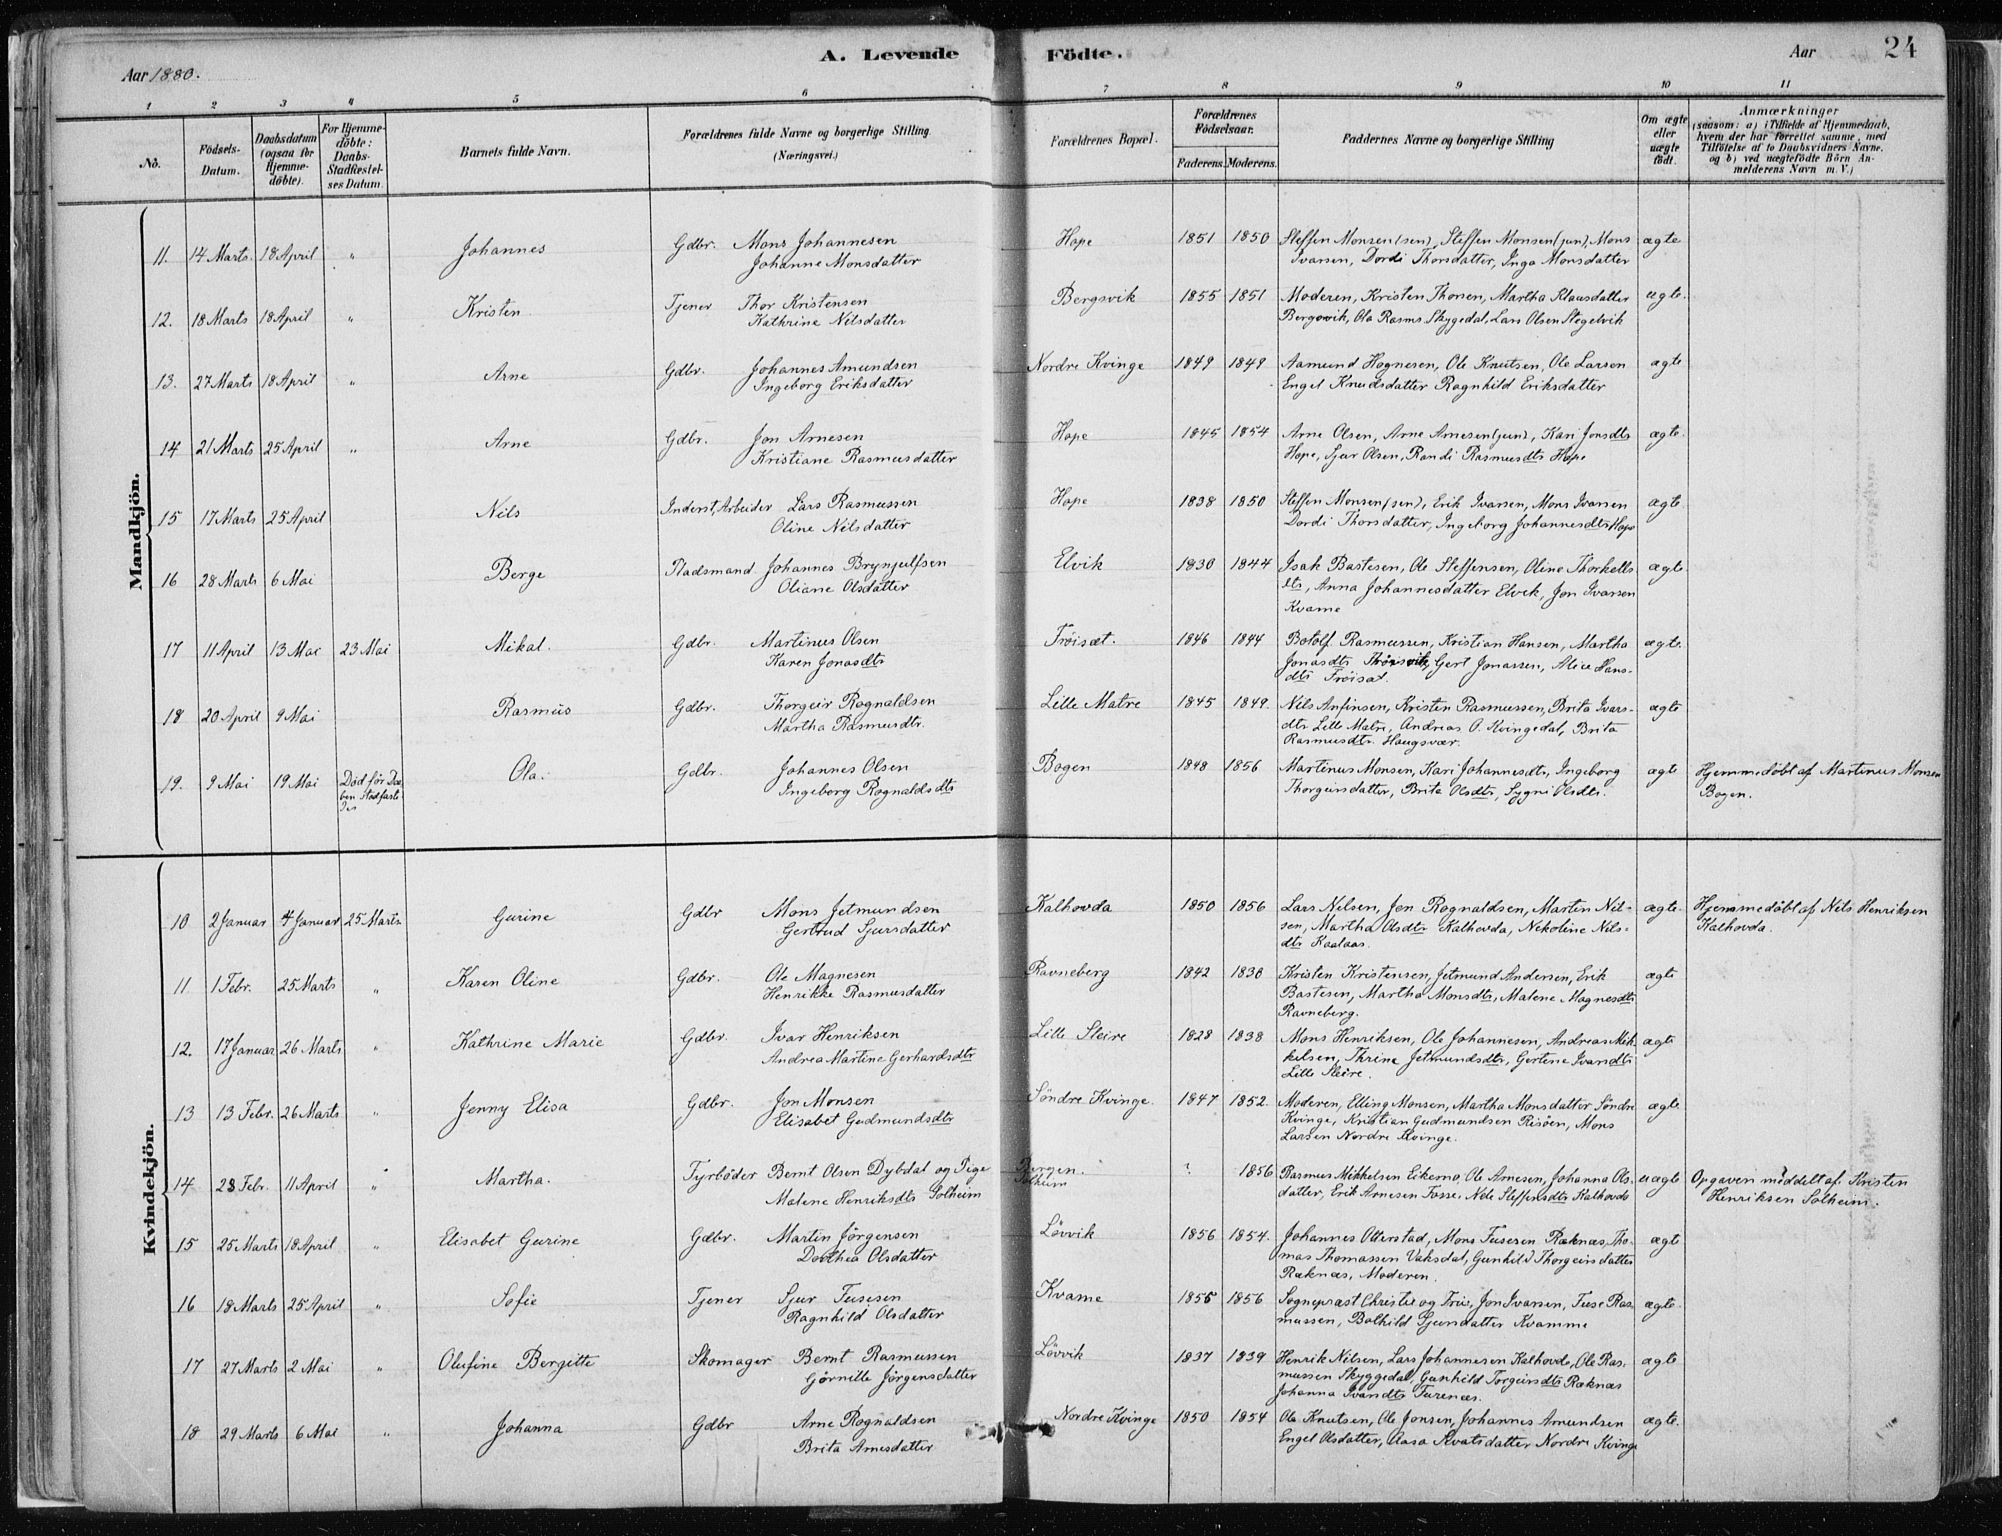 A. Levende Födte.
Aar 1880.
Aar
24
1 2 3 4 5 6 7 8 9 10 11
No.
Födsels-Datum.
Daabsdatum (ogsaa for Hjemme-döbte).
For Hjemme-döbte: Daabs-Stadfæstel-ses Datum.
Barnets fulde Navn.
Forældrenes fulde Navne og borgerlige Stilling (Næringsvei.)
Forældrenes Bopæl.
Forældrenes Födselsaar.
Faderens. Moderens.
Faddernes Navne og borgerlige Stilling
Om ægte eller uægte födt.
Anmærkninger
(saasom: a) i Tilfælde af Hjemmedaab,
hvem der har forrettet samme, med
Tilföielse af to Daabsvidners Navne.
og b) ved uægtefödte Börn An-
melderens Navn m.V.)
Mandkjön.
11. 14 Marts. 18 April " Johannes Gdbr. Mons Johannesen Hope 1851 1850 Steffen Monsen (sen), Steffen Monsen (jun), Mons ægte
Johanne Monsdatter Ivarsen, Dordi Thorsdatter, Inga Monsdatter
12. 18 Marts 18 April " Kristen Tjener Thor Kristensen Bergsvik 1855 1851 Moderen, Kristen Thorsen, Martha Klausdatter ægte.
Kathrine Nilsdatter Bergsvik, Ola Rasms Skygedal, Lars Olsen Stegelvik
13. 27 Marts 18 April " Arne Gdbr. Johannes Amundsen Nordre Kvinge 1849 1849 Aamund Hognesen, Ole Knutsen, Ole Larsen ægte
Ingeborg Eriksdatter Engel Knudsdatter Ragnhild Eriksdatter
14 21 Marts 25 April " Arne Gdbr. Jon Arnesen Hope 1845 1854 Arne Olsen, Arne Arnesen (jun), Kari Jonsdtr ægte.
Kristiane Rasmusdatter Hope, Sjur Olsen, Randi Rasmusdtr Hope
15 17 Marts 25 April Nils Inderst, Arbeider Lars Rasmussen Hope 1838 1850 Steffen Monsen (sen), Erik Ivarsen, Mons Ivarsen ægte.
Oline Nilsdatter Dordi Thorsdatter, Ingeborg Johannesdtr Hope
16 28 Marts 6 Mai Berge Pladsmand Johannes Brynjulfsen Elvik 1830 1844 Isak Bastesen, Ole Steffensen, Oline Thorkells ægte
Oliane Olsdatter dtr, Anna Johannesdatter Elvik, Jon Ivarsen
Kvame
17 11 April 13 Mai 23 Mai Mikal. Gdbr. Martinus Olsen Fröisæt. 1846 1844 Botolf Rasmussen, Kristian Hansen, Martha ægte.
Karen Jonasdtr Jonasdtr, Gert Jonassen, Alice Hans-
dtr Fröisæt.
18 20 April 9 Mai Rasmus Gdbr. Thorgeir Rognaldsen Lille Matre 1845 1849. Nils Anfinsen, Kristen Rasmussen, Brita Ivars- ægte
Martha Rasmusdtr. dtr Lille Matre, Andreas O. Kvingedal, Brita
Rasmusdtr. Haugsvær.
19. 9 Mai 19 Mai Död för Daa- Ola. Gdbr. Johannes Olsen Bogen 1848 1856 Martinus Monsen, Kari Johannesdtr, Ingeborg ægte Hjemmedöbt af Martinus Monsen
ben Stadfæst- Ingeborg Rognaldsdtr Thorgeirsdatter, Brita Olsdtr, Sygni Olsdtr. Bogen.
des
Kvindekjön.
10 2 Januar 4 Januar 25 Marts Gurine Gdbr Mons Jetmundsen Kalhovda 1850 1856 Lars Nilsen, Jon Rognaldsen, Martin Nil- ægte. Hjemmedöbt af Nils Henriksen
Gertrud Sjursdatter sen, Martha Olsdtr Kalhovda, Nekoline Nils- Kalhovda.
dtr Kaalaas.
11 1 Febr. 25 Marts " Karen Oline Gdbr. Ole Magnesen Ravneberg 1842 1830 Kristen Kristensen, Jetmund Andersen, Erik ægte
Henrikke Rasmusdatter Bastesen, Martha Monsdtr, Malene Magnesdtr
Ravneberg.
12. 17 Januar 26 Marts " Kathrine Marie Gdbr. Ivar Henriksen Lille Sleire 1828 1838 Mons Henriksen, Ole Johannesen, Andreas Mik- ægte
Andrea Martine Gerhardsdtr kelsen, Thrine Jetmundsdtr, Gertine Ivarsdtr
Lille Sleire.
13 13 Febr. 26 Marts " Jenny Elisa Gdbr. Jon Monsen Söndre Kvinge. 1847 1852. Moderen, Elling Monsen, Martha Monsdatter Söndre ægte
Elisabet Gudmundsdtr Kvinge, Kristian Gudmundsen Risöen, Mons
Larsen Nordre Kvinge.
14 28 Febr. 11 April " Martha. Fyrböder Bernt Olsen Dybdal og Pige Bergen. ? 1856 Rasmus Mikkelsen Eikemo, Ole Arnesen, Johanna Ols- uægte Opgaven meddelt af Kristen
Malene Henriksdtr Solheim Solheim datter, Erik Arnesen Fosse, Nele Steffensdtr Kalhovda Henriksen Solheim.
15 25 Marts 18 April " Elisabet Gurine Gdbr. Martin Jörgensen Lövvik 1856 1854. Johannes Otterstad, Mons Fusesen Ræknæs, Tho- ægte
Dorthea Olsdatter mas Thomassen Vaksdal, Gunhild Thorgeirsdatter
Ræknæs, Moderen.
16 18 Marts 25 April " Sofie Tjener Sjur Fusesen Kvame 1855 1856 Sognepræst Christie og Frue, Jon Ivarsen, Fuse Ras- ægte.
Ragnhild Olsdatter mussen, Bolhild Sjursdatter Kvamme
17 27 Marts 2 Mai " Olufine Bergitte Skomager Bernt Rasmussen Lövvik 1837 1839 Henrik Nilsen, Lars Johannesen Kalhovde, Ole Ras- ægte
Görnille Jörgensdatter mussen Skyggedal, Gunhild Torgeirsdtr Ræknæs
Johanna Ivarsdtr Furenæs.
18 29 Marts 6 Mai " Johanna Gdbr Arne Rognaldsen Nordre Kvinge 1850 1854 Ole Knutsen, Ole Jonsen, Johannes Amundsen ægte.
Brita Arnesdatter Engel Olsdatter, Aasa Kvatsdatter Nordre Kvinge